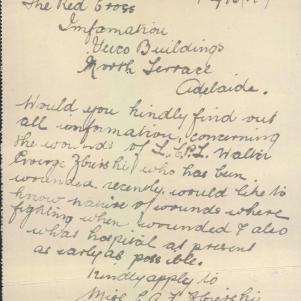 The Red Cross
Imfamation
Verco Buildings
North Terrace
Adelaide.
Would you kindly find out
all imformation, concerning
the wounds of L. CPL. Walter
George Zbierski who has been
wounded recently, would like to
know nature of wounds where
fighting when wounded & also
what hospital at present
as early as possible.
Kindly apply to
Miss